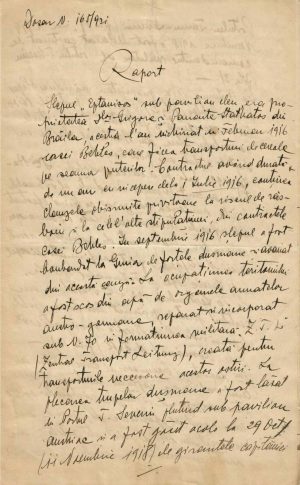 Dosar N. 165/921
Raport
Șlepul „Eptanisos" sub pavilion elen, era pro-
prietatea D-lor Grigore & Panait Stathatos din
Brăila, aceștia l'au închiriat în Februarie 1916
casei Bohles, care făcea transporturi de cereale
pe seama puterilor. Contractul având durata
de un an cu începere dela 1 Iulie 1916, conținea
clauzele obișnuite privitoare la riscul de răs-
boiu și celelalte stipulațiuni, din contractele
casei Bohles. În septembrie 1916 șlepul a fost
bombardat la Gura de forțele dușmane și avariat
din această cauză. La ocupațiunea teritoriului
a fost scos din apă de organele armatelor
austro-germane, reparat și încorporat
sub N. 70 în formațiunea militară Z. T. L.
(Zentral Transport Leitung), creată pentru
transporturile necesare acestor oștiri. La
plecarea trupelor dușmane a fost lăsat
în Portul T. Severin plutind sub pavilion
austriac și a fost găsit acolo la 29 Oct/
(11 Noembrie 1918) de girantele căpităniei